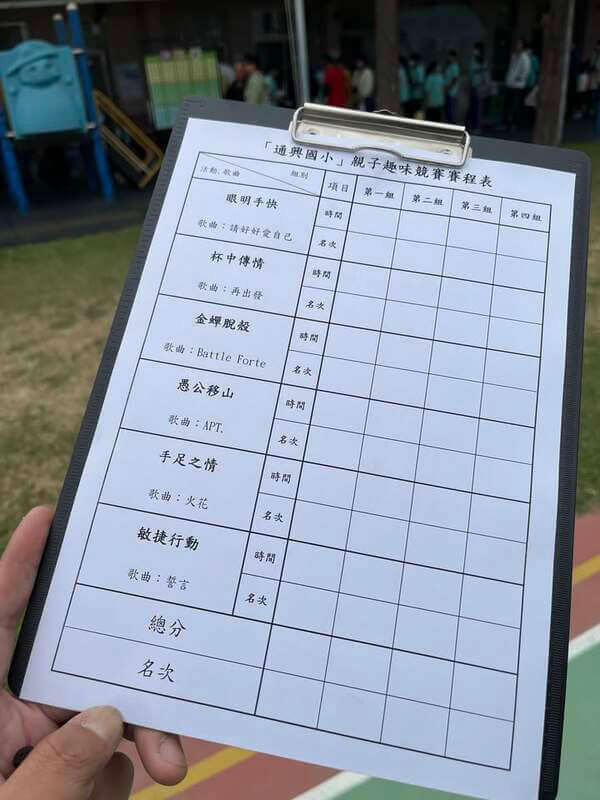 「通興國小」親子趣味競賽賽程表
活動、歌曲 組別 項目 第一組 第二組 第三組 第四組
眼明手快 時間
歌曲：請好好愛自己 名次
杯中傳情 時間
歌曲：再出發 名次
金蟬脫殼 時間
歌曲：Battle Forte 名次
愚公移山 時間
歌曲：APT. 名次
手足之情 時間
歌曲：火花 名次
敏捷行動 時間
歌曲：誓言 名次
總分
名次